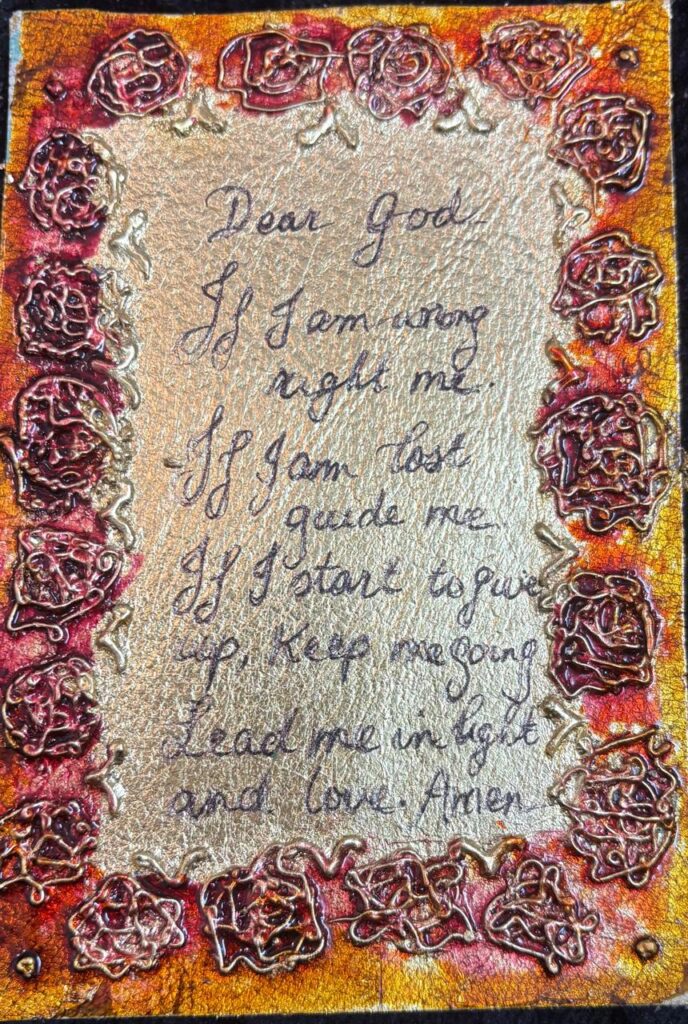 Dear God
If I am wrong
right me.
If I am lost
guide me
If I start to give
up, Keep me going
Lead me in light
and love. Amen